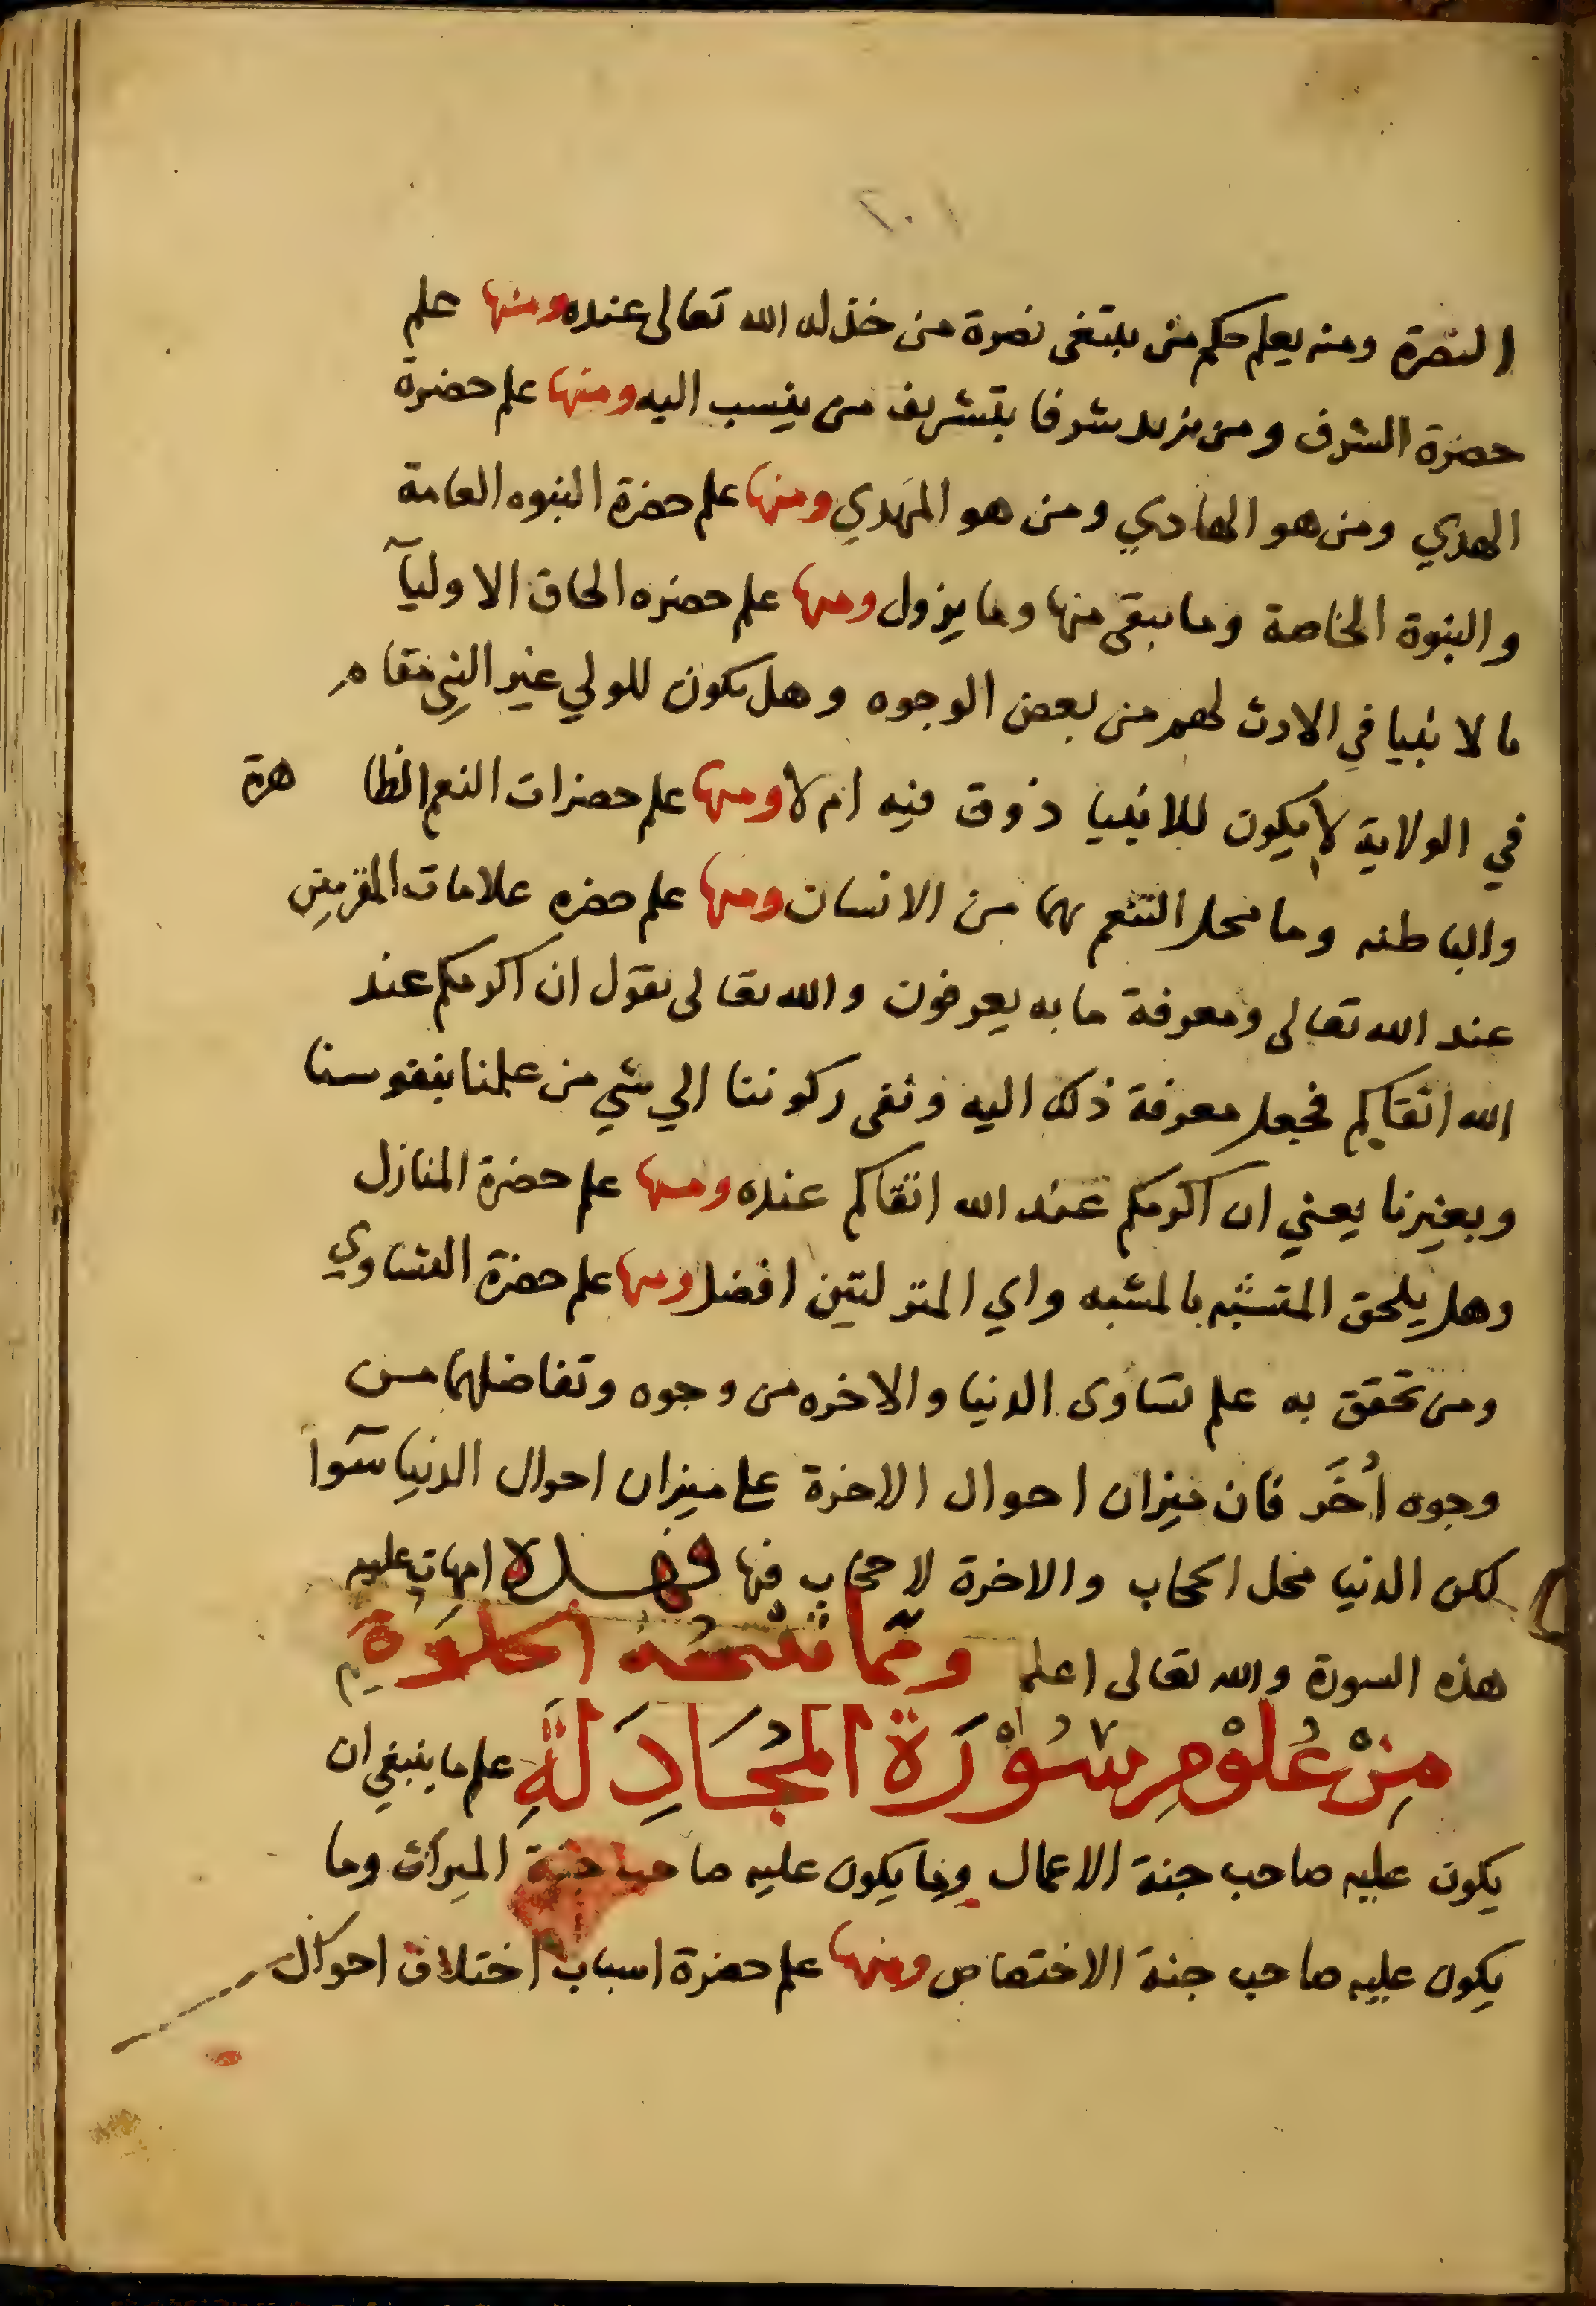 ٢٠١
النصرة ومنه يعلم حكم من يبتغى نصرة من خذله الله تعالى عنده ومنها علم
حضرة الشرف ومن يزيد شرفا بتشريف من ينسب اليه ومنها علم حضرة
الهدي ومن هو الهادي ومن هو المهدي ومنها علم حضرة النبوه العامة
والنبوة الخاصة وما يبقى منها وما يزول ومنها علم حضره الحاق الاوليآ
ما لانبيا في الارث لهم من بعض الوجوه وهل يكون للولي غير النبي مقام
في الولاية لا يكون للانبيا ذوق فيه ام لا ومنها علم حضرات النعم الظا هرة
والباطنه وما محل التنعم بهما من الانسان ومنها علم حضره علامات المقربين
عند الله تعالى ومعرفة ما به يعرفون والله تعالى يقول ان اكرمكم عند
الله اتقاكم فجعل معرفة ذلك اليه ونفى ركوننا الي شي من علمنا بنفوسنا
وبغيرنا يعني ان اكرمكم عند الله اتقاكم عنده ومنها علم حضرة المنازل
وهل يلحق المتشبه بالمشبه واي المنزلتين افضل ومنها علم حضرة التساوي
ومن تحقق به علم تساوى الدنيا والاخره من وجوه وتفاضلهما من
وجوه أُخَر فان ميزان احوال الاخرة على ميزان احوال الدنيا سوآ
لكن الدنيا محل الحجاب والاخرة لا حجاب فيها فهذه امهات علوم
هذه السورة والله تعالى اعلم ومما
مِنْ عُلُوْمِ سُوْرَة المُجَادِلَةِ علم ما ينبغي ان
يكون عليه صاحب جنة الاعمال وما يكون عليه صاحب جنة الميراث وما
يكون عليه صاحب جنة الاختصاص ومنها علم حضرة اسباب اختلاف احوال